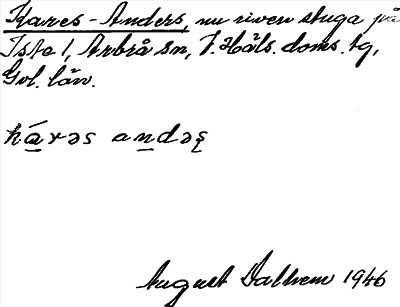 Kares-Anders, nu riven stuga på
Ista 1, Arbrå sn, V. Häls. doms. tg,
Gvl. län.
ká̲rəs an̲dəs̨
August Dalhem 1946